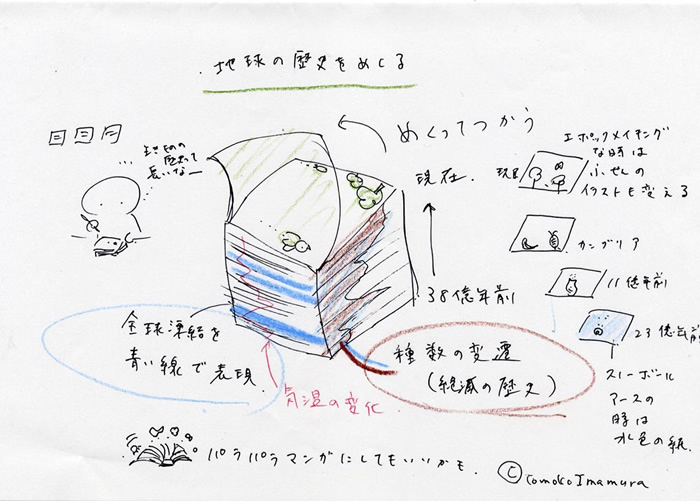 地球の歴史をめくる
地球の
歴史って
長いなー
めくってつかう
エポックメイキング
な時は
ふせんの
イラストも変える
現在
現在.
カンブリア
11億年前
38億年前
23億年前
全球凍結を
青い線で表現.
種数の変遷
(絶滅の歴史)
気温の変化
スノーボール
アースの
時は
水色の紙.
パラパラマンガにしてもいいかも.
© tomoko Imamura